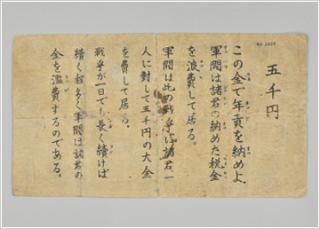 五千円
この金で年貢を納めよ
軍閥は諸君の納めた税金
を浪費して居る。
軍閥は此の戦争に諸君一
人に対して五千円の大金
を費して居る。
戦争が一日でも長く続けば
続く程多く軍閥は諸君の
金を濫費するのである。